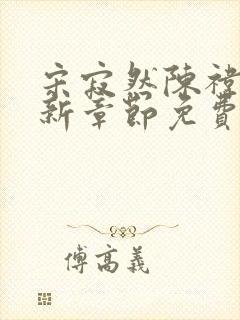 宋寂然陳禕
新章節免費
傅高義